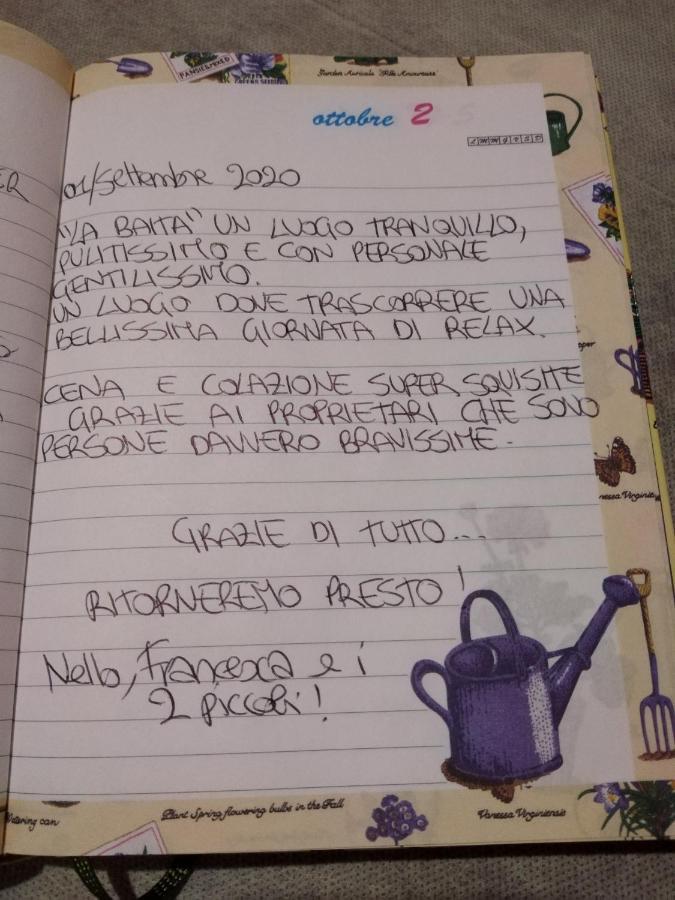 PANSIES MIXED
Garden Auricula "Rita Amoureuse"
ottobre 2
01/Settembre 2020
"LA BAITA" UN LUOGO TRANQUILLO,
PULITISSIMO E CON PERSONALE
GENTILISSIMO.
UN LUOGO DOVE TRASCORRERE UNA
BELLISSIMA GIORNATA DI RELAX.
CENA E COLAZIONE SUPER SQUISITE
GRAZIE AI PROPRIETARI CHE SONO
PERSONE DAVVERO BRAVISSIME.
GRAZIE DI TUTTO...
RITORNEREMO PRESTO!
Nello, Francesca e i
2 piccoli!
Watering can
Plant Spring flowering bulbs in the Fall
Vanessa Virginiensis